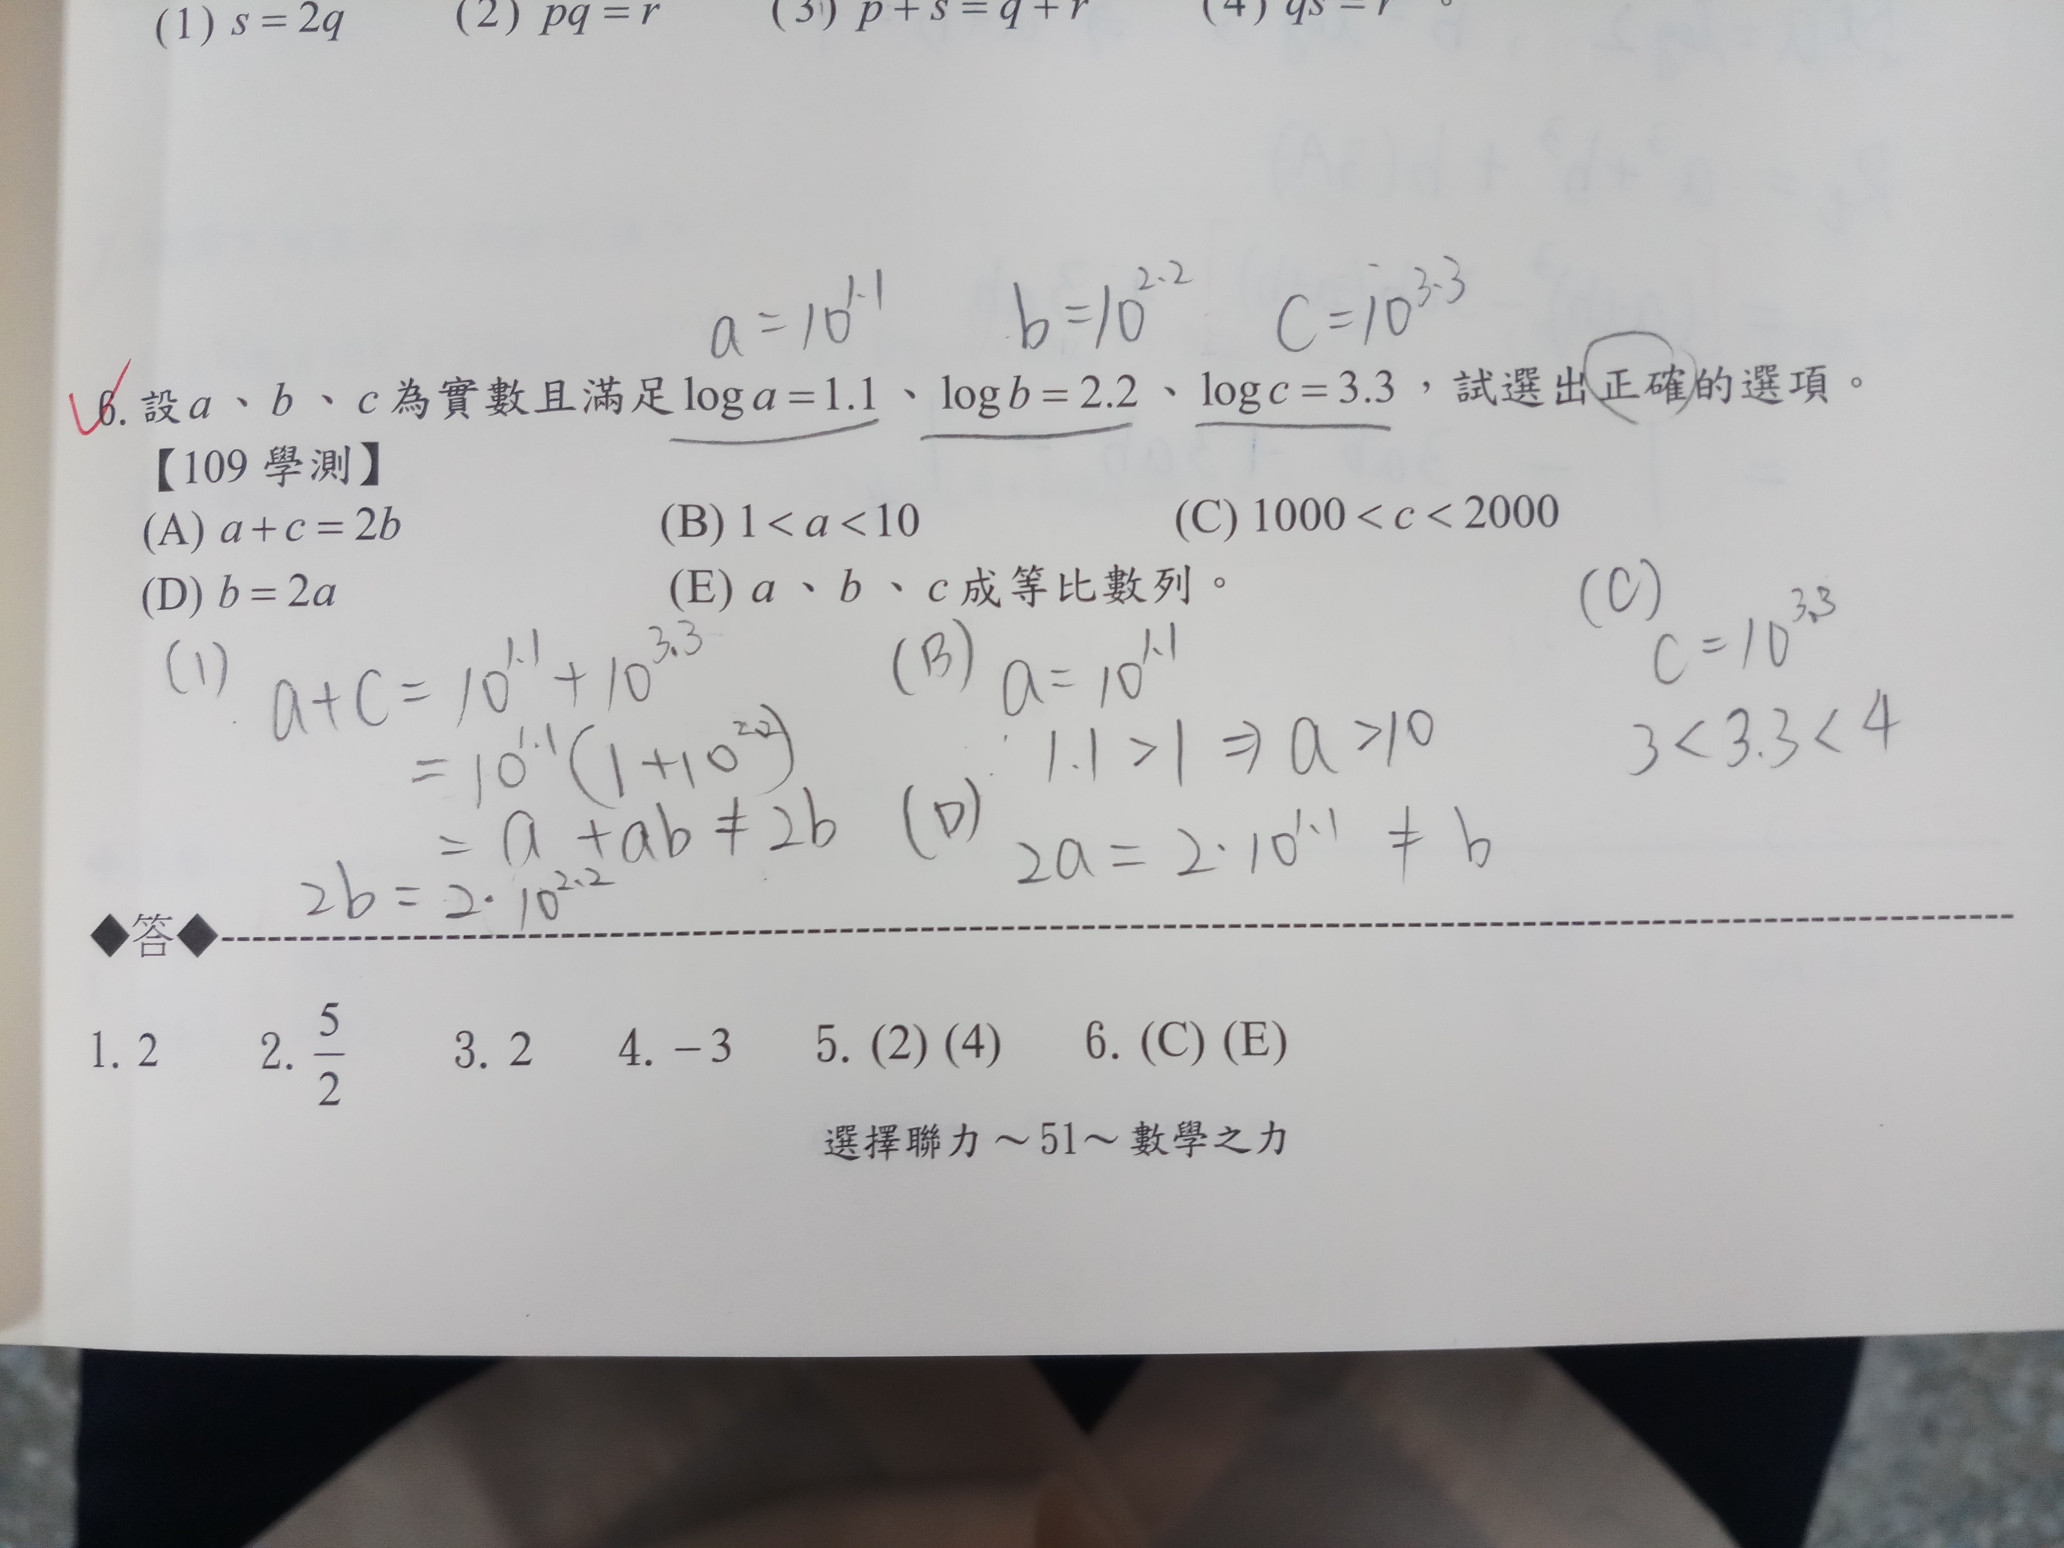 (1) s = 2q (2) pq = r (3) p + s = q + r (4) qs = r 。
a = 10^1.1 b = 10^2.2 c = 10^3.3
6. 設a、b、c為實數且滿足log a = 1.1、log b = 2.2、log c = 3.3，試選出正確的選項。
【109 學測】
(A) a + c = 2b (B) 1 < a < 10 (C) 1000 < c < 2000
(D) b = 2a (E) a、b、c成等比數列。
(1) a+c = 10^1.1 + 10^3.3
= 10^1.1 (1+10^2.2)
= a + ab ≠ 2b
2b = 2·10^2.2
(B) a = 10^1.1
1.1 > 1 ⇒ a > 10
(D) 2a = 2·10^1.1 ≠ b
(C)
c = 10^3.3
3 < 3.3 < 4
◆答◆
1. 2 2. 5/2 3. 2 4. −3 5. (2) (4) 6. (C) (E)
選擇聯力～51～數學之力